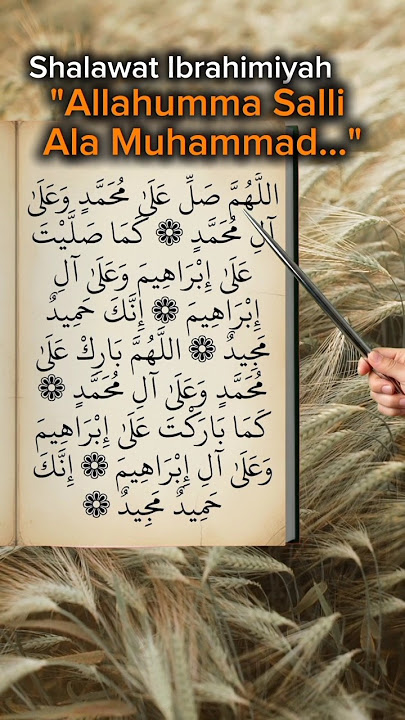 Shalawat Ibrahimiyah
"Allahumma Salli
Ala Muhammad..."
اللَّهُمَّ صَلِّ عَلَىٰ مُحَمَّدٍ وَعَلَىٰ
آلِ مُحَمَّدٍ ❁ كَمَا صَلَّيْتَ
عَلَىٰ إِبْرَاهِيمَ وَعَلَىٰ آلِ
إِبْرَاهِيمَ ❁ إِنَّكَ حَمِيدٌ
مَجِيدٌ ❁ اللَّهُمَّ بَارِكْ عَلَىٰ
مُحَمَّدٍ وَعَلَىٰ آلِ مُحَمَّدٍ ❁
كَمَا بَارَكْتَ عَلَىٰ إِبْرَاهِيمَ
وَعَلَىٰ آلِ إِبْرَاهِيمَ ❁ إِنَّكَ
حَمِيدٌ مَجِيدٌ ❁